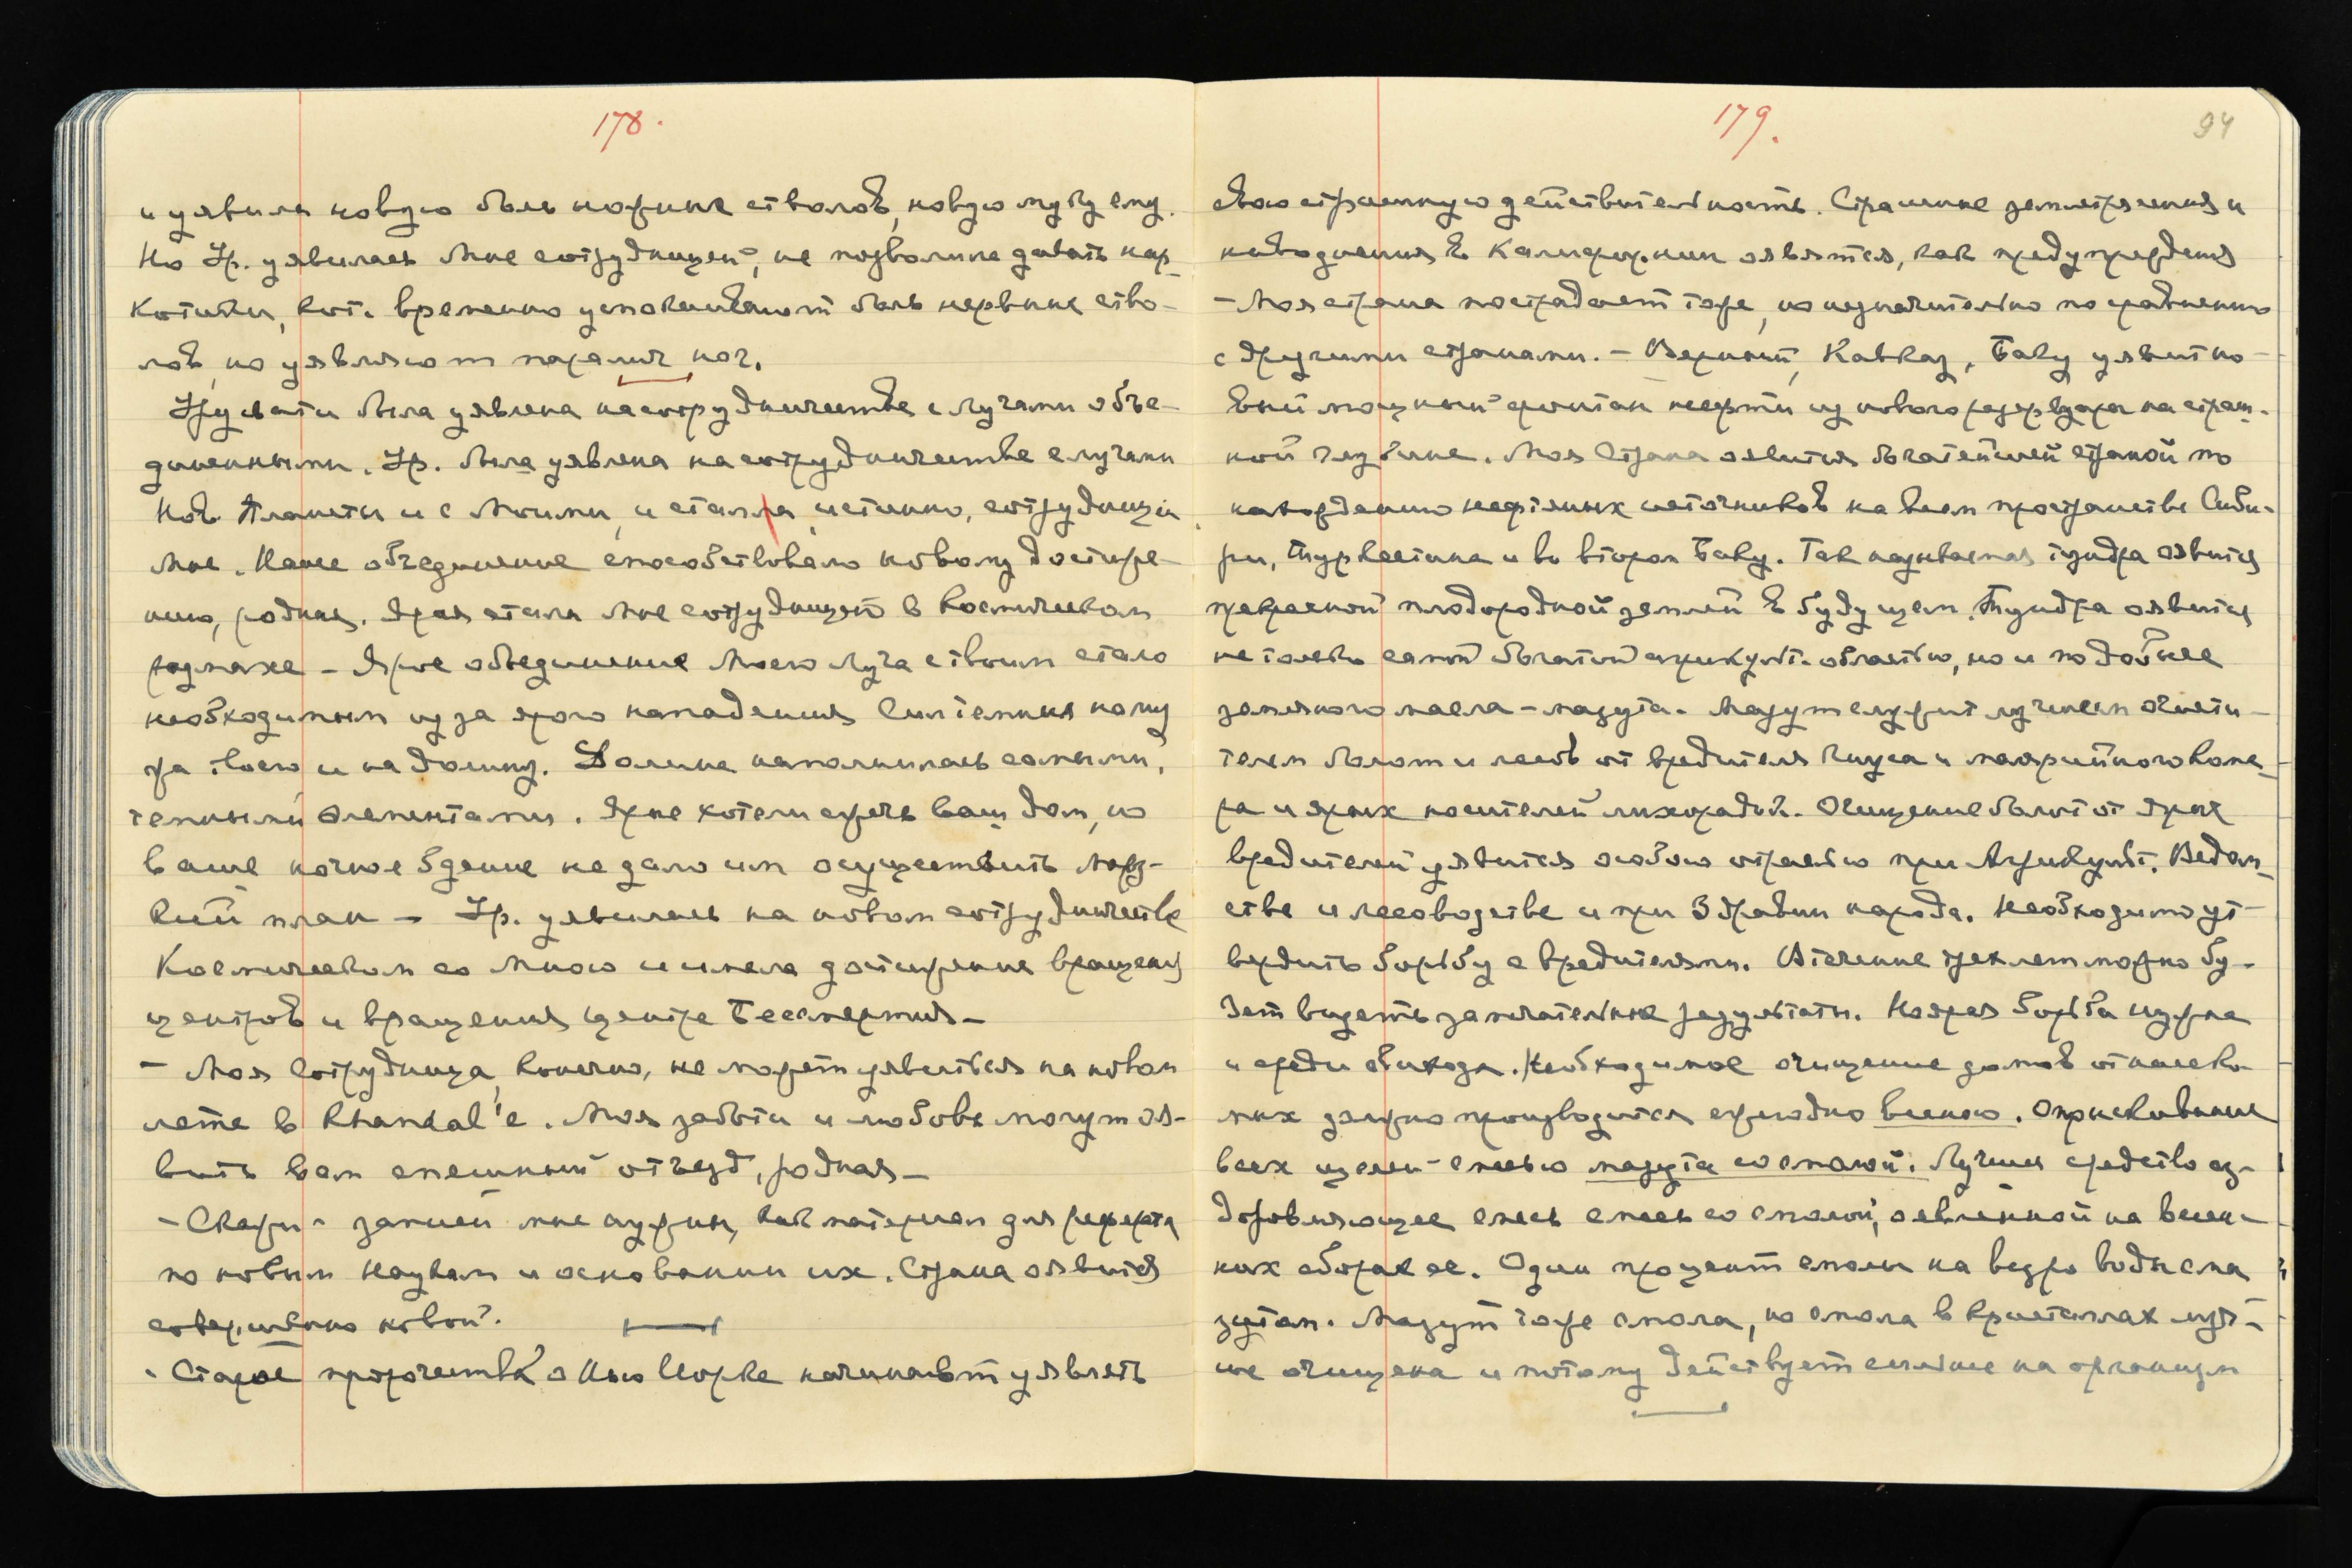 178.
и уявила новую боль ножных стволов, новую муку ему.
Но Ур. уявилась Мне сотрудницей, не позволила давать нар-
котики, кот. временно успокаивают боль нервных ство-
лов, но уявляют паралич ног.
Урусвати была уявлена на сотрудничестве с Лучами объе-
диненными. Ур. была уявлена на сотрудничестве с лучами
Нов. Планеты и с Моими, и стала, истинно, сотрудницей
Мне. Наше объединение способствовало новому достиже-
нию, родная. Ярая стала Мне сотрудницей в космическом
размахе – Ярое объединение Моего Луча с твоим стало
необходимым из за ярого нападения
на Долину. Долина наполнилась самыми
темными элементами. Ярые хотели сжечь ваш дом, но
ваше ночное бдение не дало им осуществить мерз-
кий план – Ур. уявилась на новом сотрудничестве
Космическом со Мною и имела достижение вращения
центров и вращения центра Бессмертия –
– Моя Сотрудница, конечно, не может уявиться на новом
лете в Khandal'е. Моя забота и любовь могут оя-
вить вам спешный отъезд, родная –
– Скажи – запиши мне нужды, как материал для реферата
по новым Наукам и основании их. Страна оявится
совершенно новой.
– Старое пророчество о Нью Иорке начинает уявлять
179.
94
свою страшную действительность. Страшные землетрясения и
наводнения в Калифорнии оявятся, как предупреждения
– Моя страна пострадает тоже, но незначительно по сравнению
с другими странами. – Верный, Кавказ, Баку уявит но-
вый мощный фонтан нефти из нового резервуара на страш-
ной глубине. Моя Страна оявится богатейшей страной по
нахождению нефтяных источников на всем пространстве Сиби-
ри, Туркестана и во втором Баку. Так называемая тундра оявится
прекрасной плодородной землей в будущем. Тундра оявится
не только самой богатой агрикульт. областью, но и по добыче
земляного масла – мазута. Мазут служит лучшим очисти-
телем болот и лесов от вредителя гнуса и малярийного кома-
ра и ярых носителей лихорадки. Очищение болот от ярых
вредителей уявится особою отраслью при Агрикульт. Ведом-
стве и лесоводстве и при Здравии народа. Необходимо ут-
вердить борьбу с вредителями. В течение трех лет можно бу-
дет видеть замечательные результаты. Но ярая борьба нужна
и среди обихода. Необходимое очищение домов от насеко-
мых должно производиться ежегодно весною. Опрыскивание
всех щелей смесью мазута со смолой. Лучшее средство оз-
доровляющее смесь со смолой, оявленной на весен-
них сборах ее. Один процент смолы на ведро воды с ма
зутом. Мазут тоже смола, но смола в кристаллах луч-
ше очищена и потому действует сильнее на организм